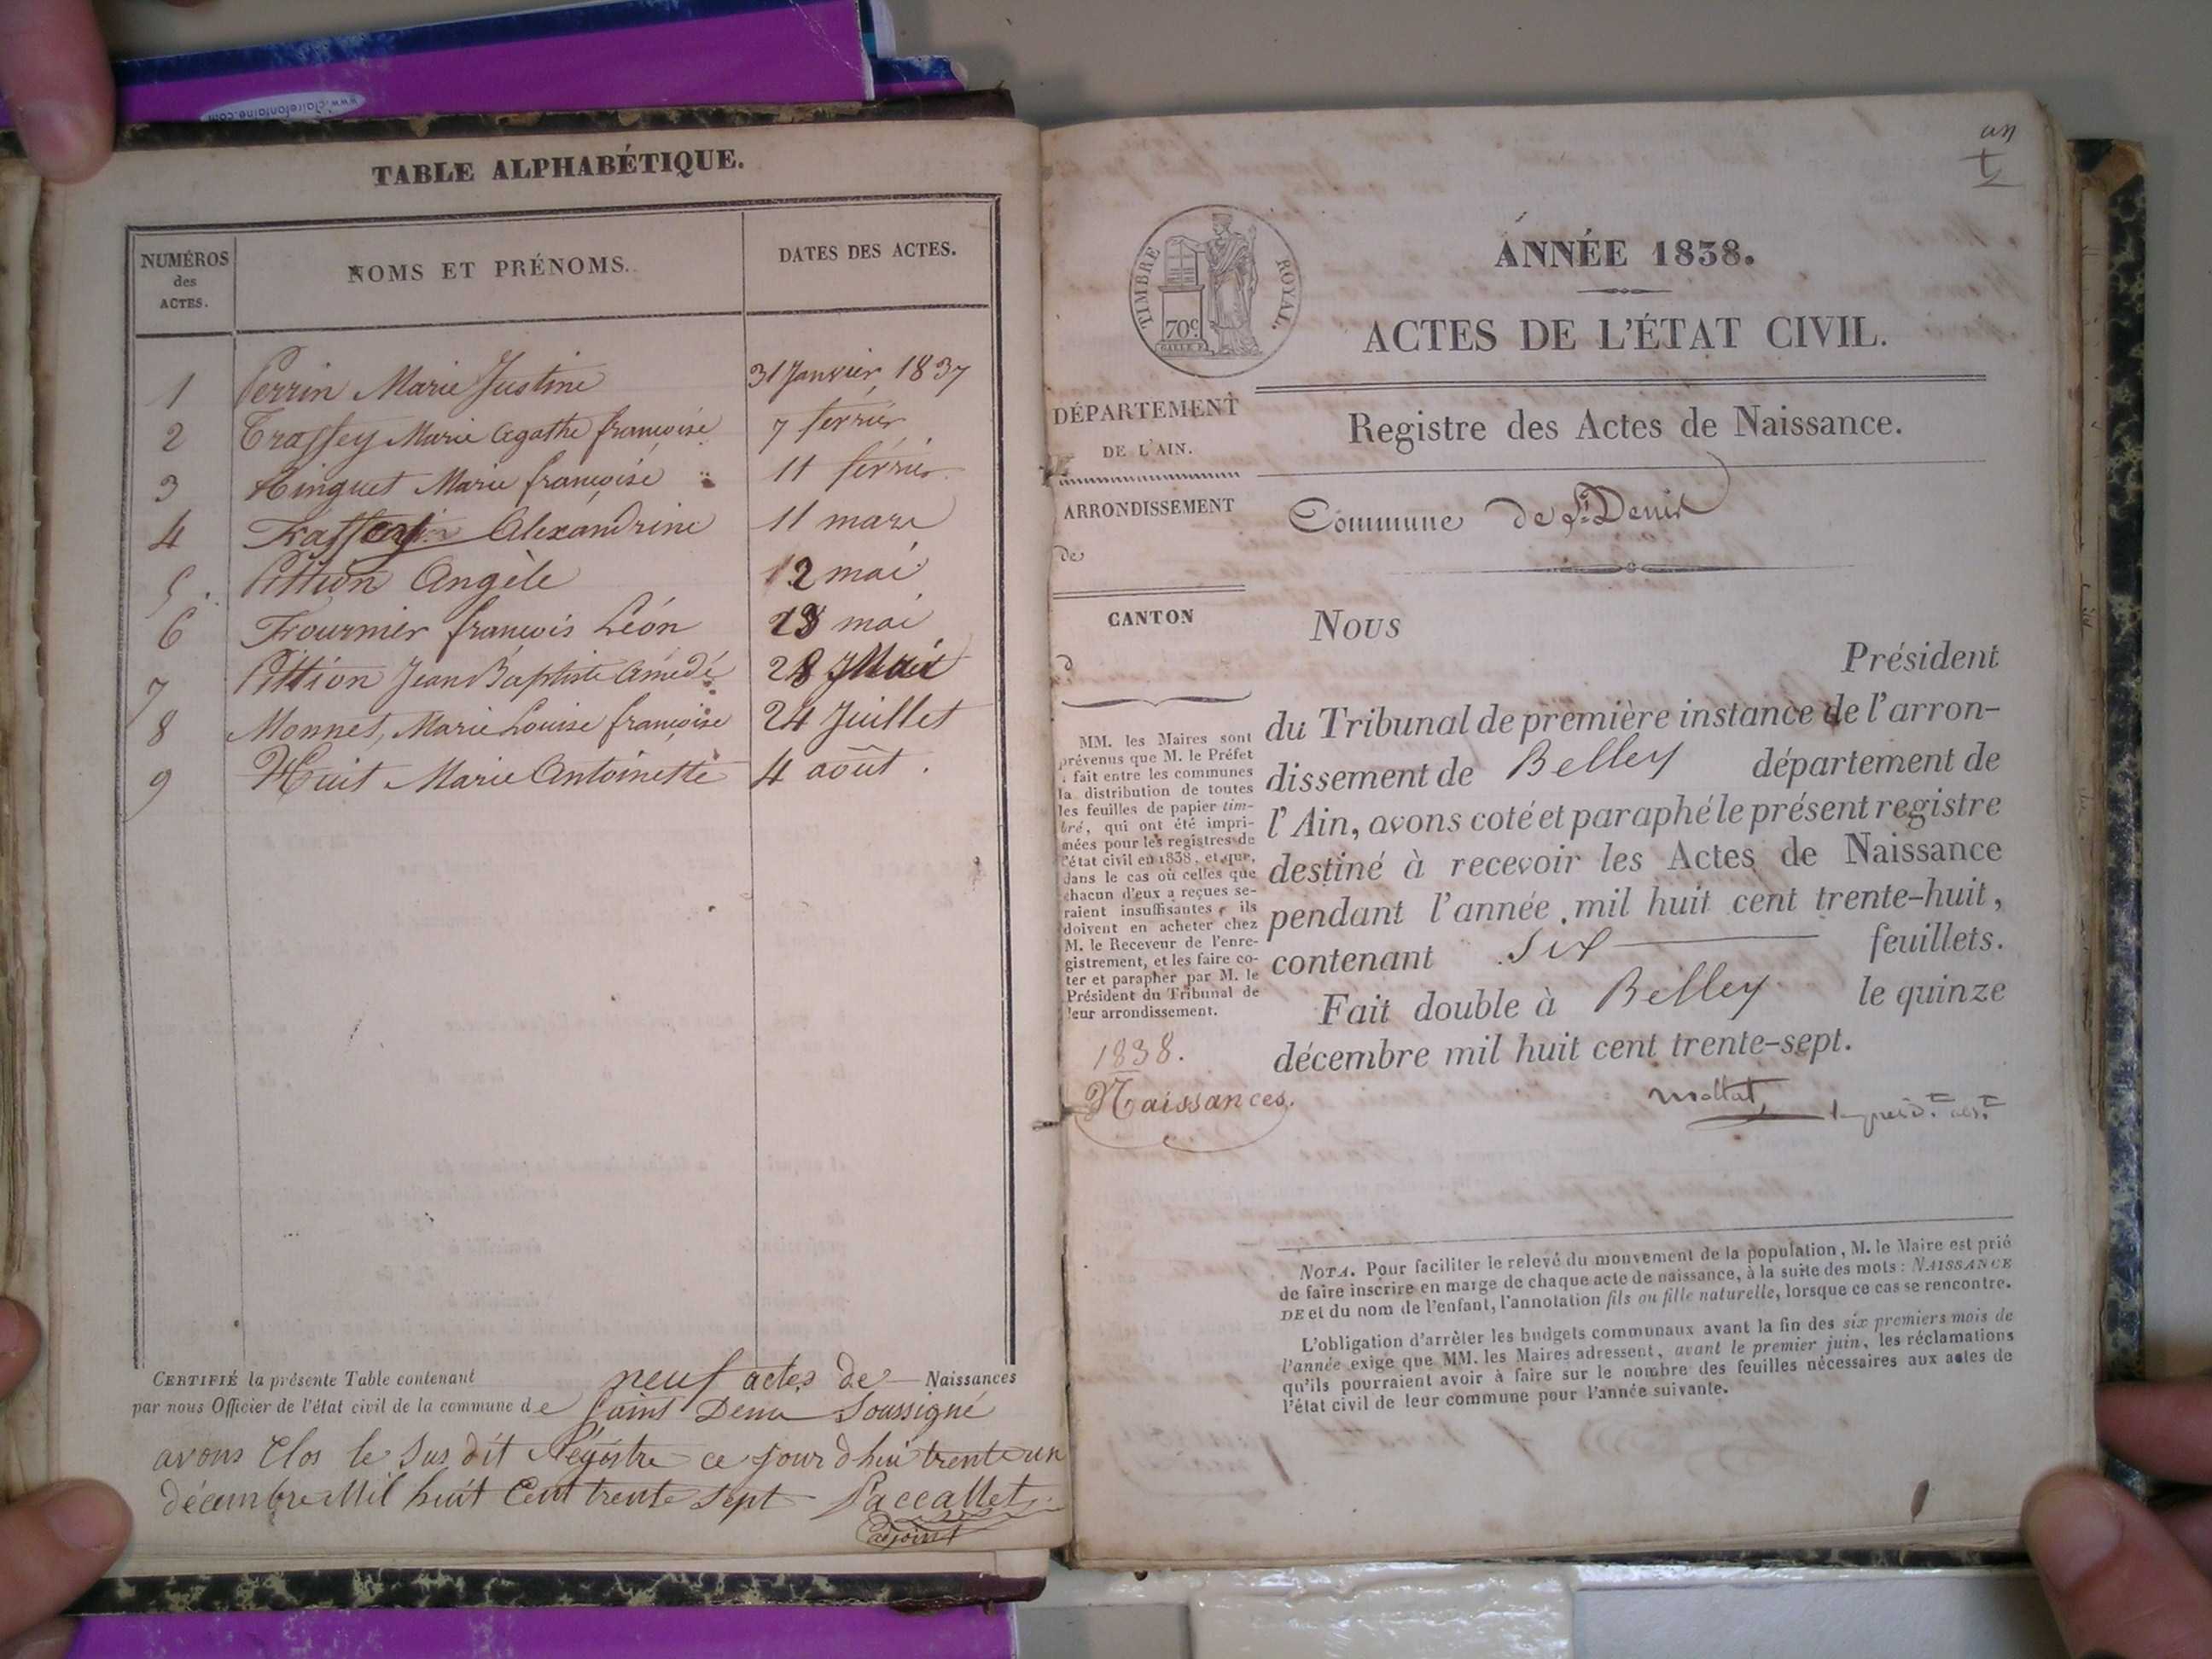 www.clairefontaine.com
TABLE ALPHABÉTIQUE.
NUMÉROS des ACTES.
NOMS ET PRÉNOMS.
DATES DES ACTES.
1 Perrin Marie Justine 31 Janvier 1837
2 Traffey Marie Agathe françoise 7 février
3 Hinguet Marie françoise 11 février
4 Traffey Alexandrine 11 mars
5 Pittion Angèle 12 mai
6 Fournier françois Léon 28 mai
7 Pittion Jean Baptiste Amédé 28
8 Monnet, Marie Louise françoise 24 Juillet
9 Huit Marie Antoinette 4 août.
CERTIFIÉ la présente Table contenant neuf actes de Naissances
par nous Officier de l'état civil de la commune de Saint Denis Soussigné
avons Clos le Sus dit Régistre ce jour dhui trente un
décembre Mil huit Cent trente Sept Paccallet
adjoint
un
TIMBRE ROYAL.
70c
ANNÉE 1838.
ACTES DE L'ÉTAT CIVIL.
DÉPARTEMENT
DE L'AIN.
Registre des Actes de Naissance.
ARRONDISSEMENT
de
Commune de St Denis
CANTON
d
Nous
Président
du Tribunal de première instance de l'arron-
dissement de Belley département de
l'Ain, avons coté et paraphé le présent registre
destiné à recevoir les Actes de Naissance
pendant l'année mil huit cent trente-huit,
contenant Six feuillets.
Fait double à Belley le quinze
décembre mil huit cent trente-sept.
Mollat
MM. les Maires sont
prévenus que M. le Préfet
a fait entre les communes
la distribution de toutes
les feuilles de papier tim-
bré, qui ont été impri-
mées pour les registres de
l'état civil en 1838, et que,
dans le cas où celles que
chacun d'eux a reçues se-
raient insuffisantes, ils
doivent en acheter chez
M. le Receveur de l'enre-
gistrement, et les faire co-
ter et parapher par M. le
Président du Tribunal de
leur arrondissement.
1838.
Naissances.
NOTA. Pour faciliter le relevé du mouvement de la population, M. le Maire est prié
de faire inscrire en marge de chaque acte de naissance, à la suite des mots : NAISSANCE
DE et du nom de l'enfant, l'annotation fils ou fille naturelle, lorsque ce cas se rencontre.
L'obligation d'arrêter les budgets communaux avant la fin des six premiers mois de
l'année exige que MM. les Maires adressent, avant le premier juin, les réclamations
qu'ils pourraient avoir à faire sur le nombre des feuilles nécessaires aux actes de
l'état civil de leur commune pour l'année suivante.